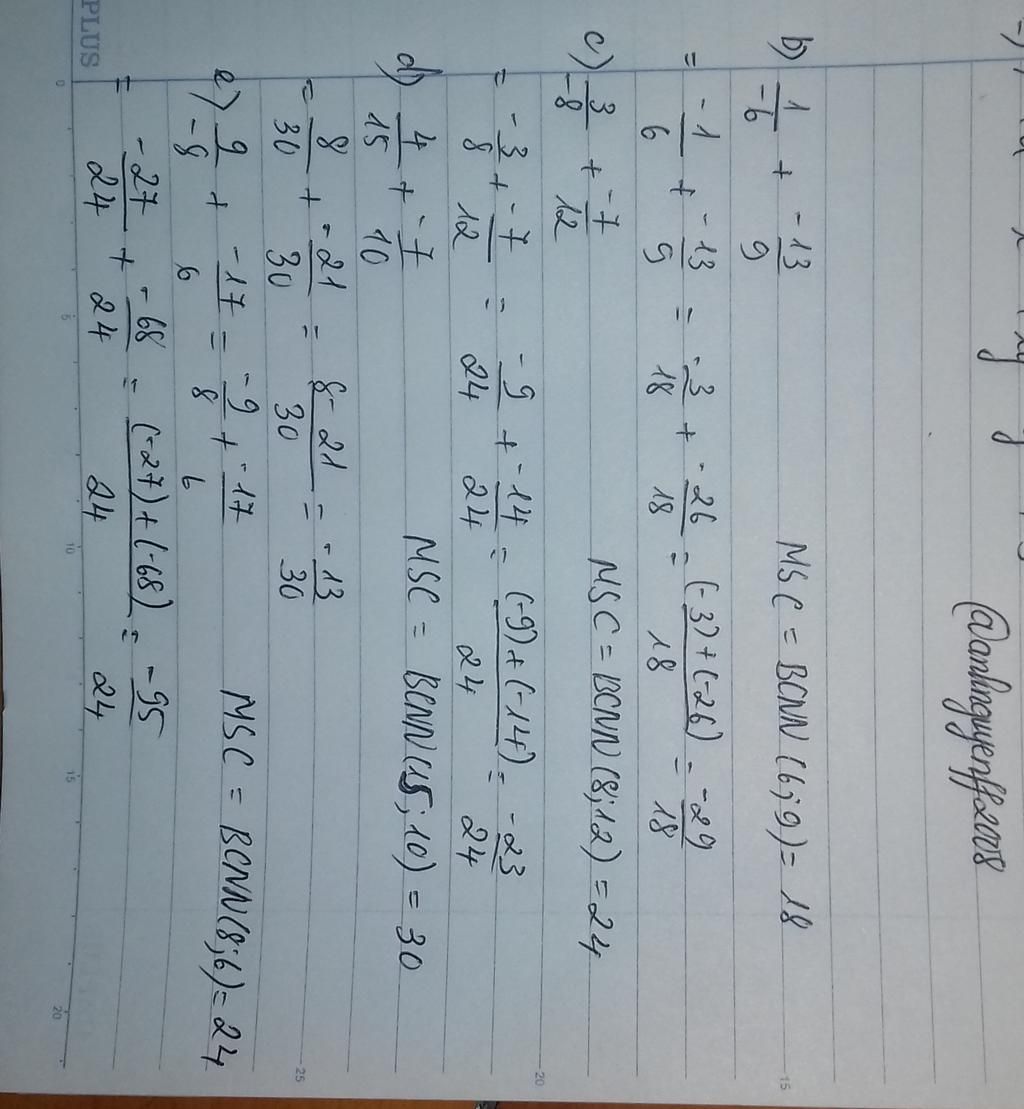 @anhnguyenff2008
b) 1/-6 + -13/9 MSC = BCNN (6;9) = 18
= -1/6 + -13/9 = -3/18 + -26/18 = (-3)+(-26)/18 = -29/18
c) 3/-8 + -7/12 MSC = BCNN (8;12) = 24
= -3/8 + -7/12 = -9/24 + -14/24 = (-9)+(-14)/24 = -23/24
d) 4/15 + -7/10 MSC = BCNN (15;10) = 30
= 8/30 + -21/30 = 8-21/30 = -13/30
e) 9/-8 + -17/6 = -9/8 + -17/6 MSC = BCNN (8;6) = 24
= -27/24 + -68/24 = (-27)+(-68)/24 = -95/24
PLUS
0 5 10 15 20
15
20
25